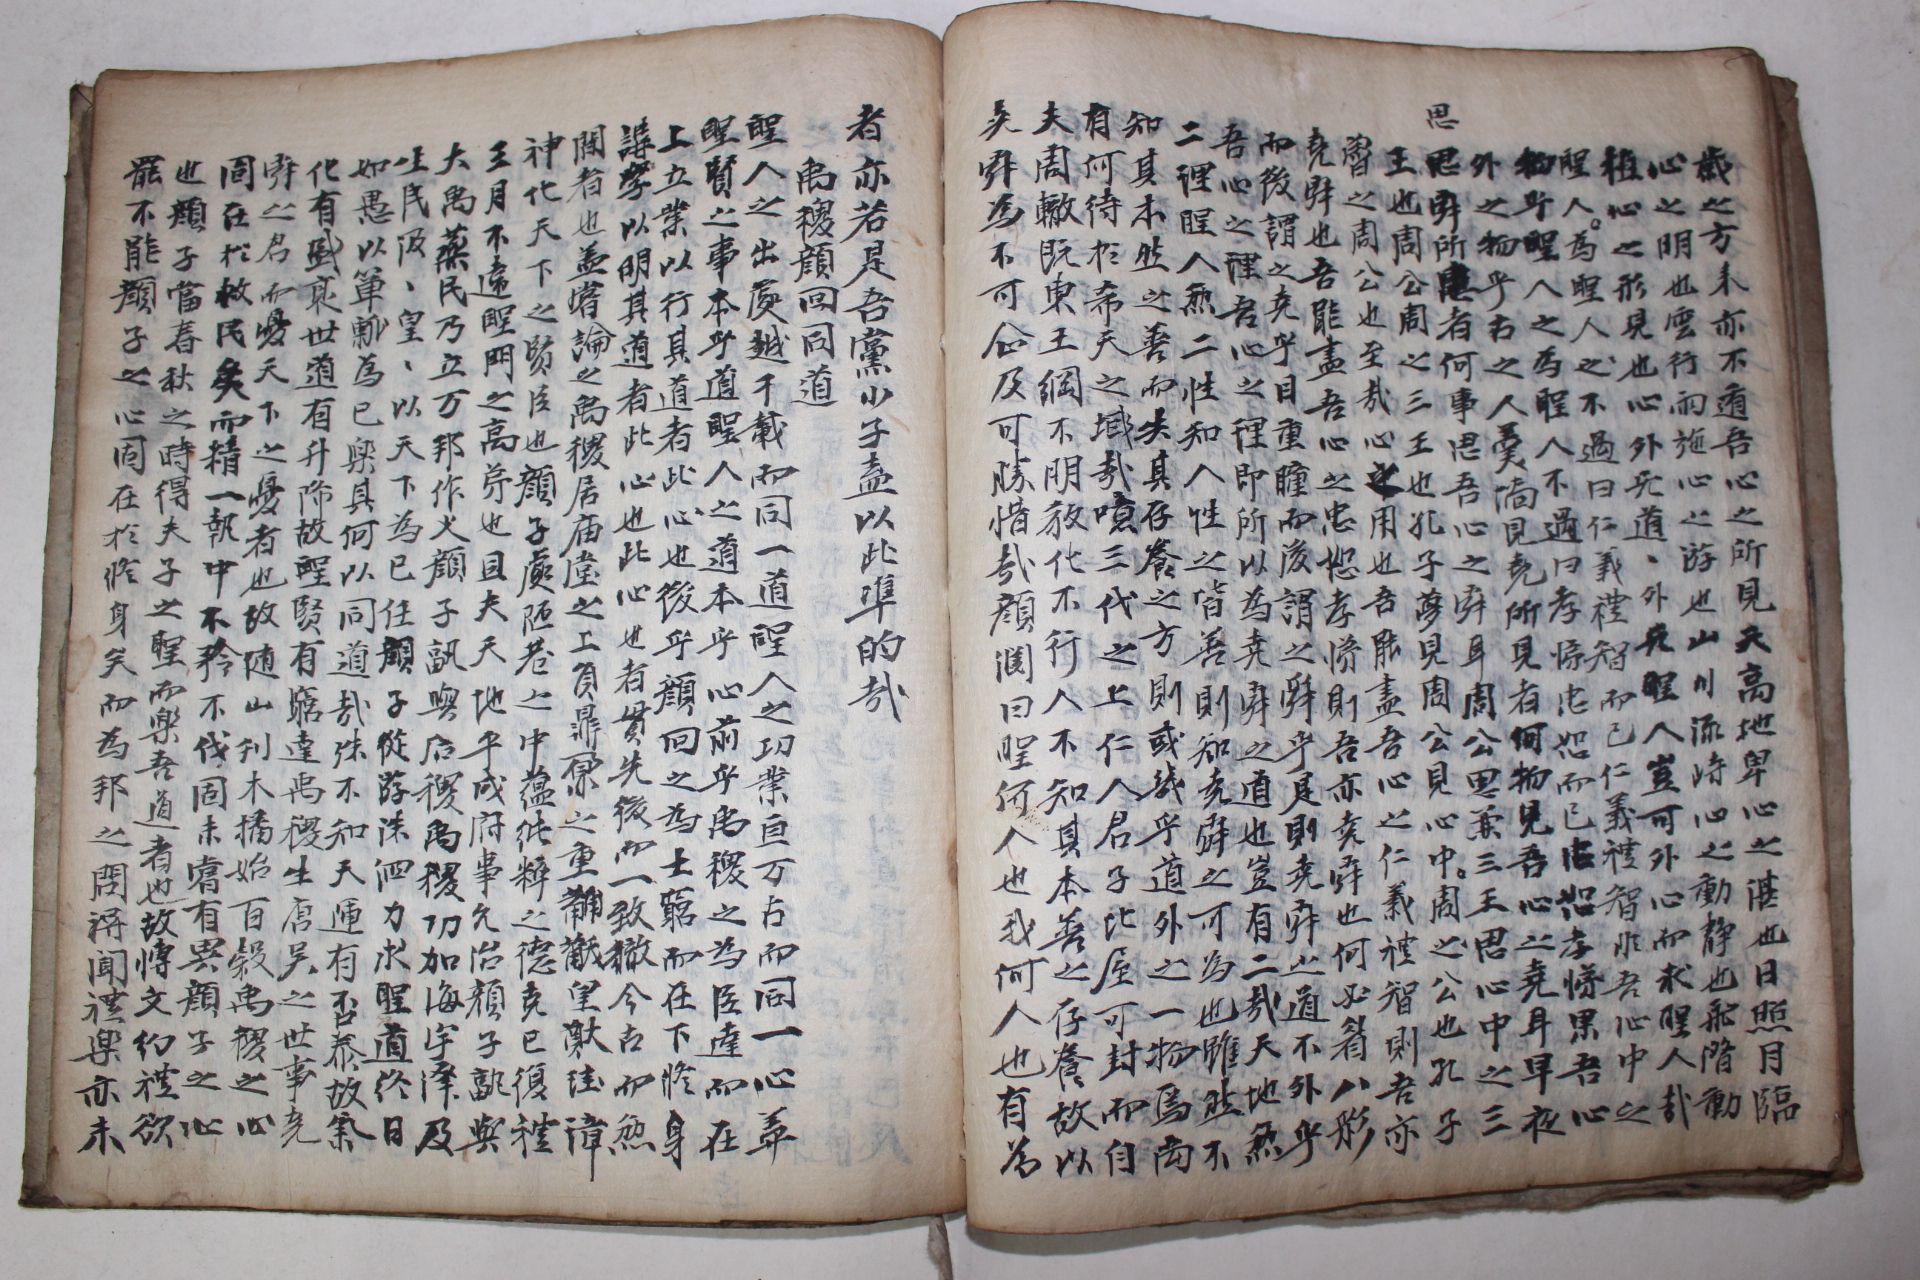 思
歲之方來亦不遁吾心之所見天高地卑心之湛也日照月臨
心之明也雲行雨施心之游也山川流峙心之動靜也
植心之形見也心外無道道外無聖人豈可外心而求聖人哉
聖人為聖人之不過曰仁義禮智而已仁義禮智非吾心中之
物乎聖人之為聖人不過曰孝悌忠恕而已忠恕孝悌果吾心
外之物乎古之人羹墻見堯所見者何物見吾心之堯耳早夜
思舜所思者何事思吾心之舜耳周公思兼三王思心中之三
王也周公周之三王也孔子夢見周公見心中周之公也孔子
魯之周公也至哉心之用也吾能盡吾心之仁義禮智則吾亦
堯舜也吾能盡吾心之忠恕孝悌則吾亦堯舜也何必看八彩
而後謂之堯乎目重瞳而後謂之舜乎是則堯舜之道不外乎
吾心之理吾心之理即所以為堯舜之道也豈有二哉天地無
二理聖人無二性知人性之皆善則知堯舜之可為也雖然不
知其本然之善而失其存養之方則或哉乎道外之一物焉
有何待於希天之域哉噫三代之上仁人君子比屋可封而自
夫周轍既東王綱不明教化不行人不知其本善之存養故以
矣舜為不可企及可勝惜哉顏淵曰聖何人也我何人也有為
者亦若是吾黨小子盍以此準的哉
禹稷顏回同道
聖人之出處越千載而同一道聖人之功業亘万古而同一心盖
聖賢之事本乎道聖人之道本乎心前乎禹稷之為臣達而在
上立業以行其道者此心也後乎顏回之為士窮而在下修身
講學以明其道者此心也此心也者貫先後而一致轍今古而無
間者也盖嘗論之禹稷居庙堂之上負鼎之重黼黻皇猷珪璋
神化天下之賢臣也顏子處陋巷之中蘊純粹之德克已復禮
三月不違聖門之高弟也且夫天地平成府事允治顏子孰與
大禹蒸民乃立万邦作乂顏子孰與后稷禹稷功加海宇澤及
生民汲汲皇皇以天下為已任顏子從游洙泗力求聖道終日
如愚以簞瓢為已樂其何以同道哉殊不知天運有否泰故氣
化有盛衰世道有升降故聖賢有窮達禹稷生唐吳之世事堯
舜之君而憂天下之憂者也故随山刊木播始百穀禹稷之心
固在於救民矣而精一執中不矜不伐固未嘗有異顏子之心
也顏子當春秋之時得夫子之聖而樂吾道者也故博文約禮欲
罷不能顏子之心固在於修身矣而為邦之問得聞禮樂亦未